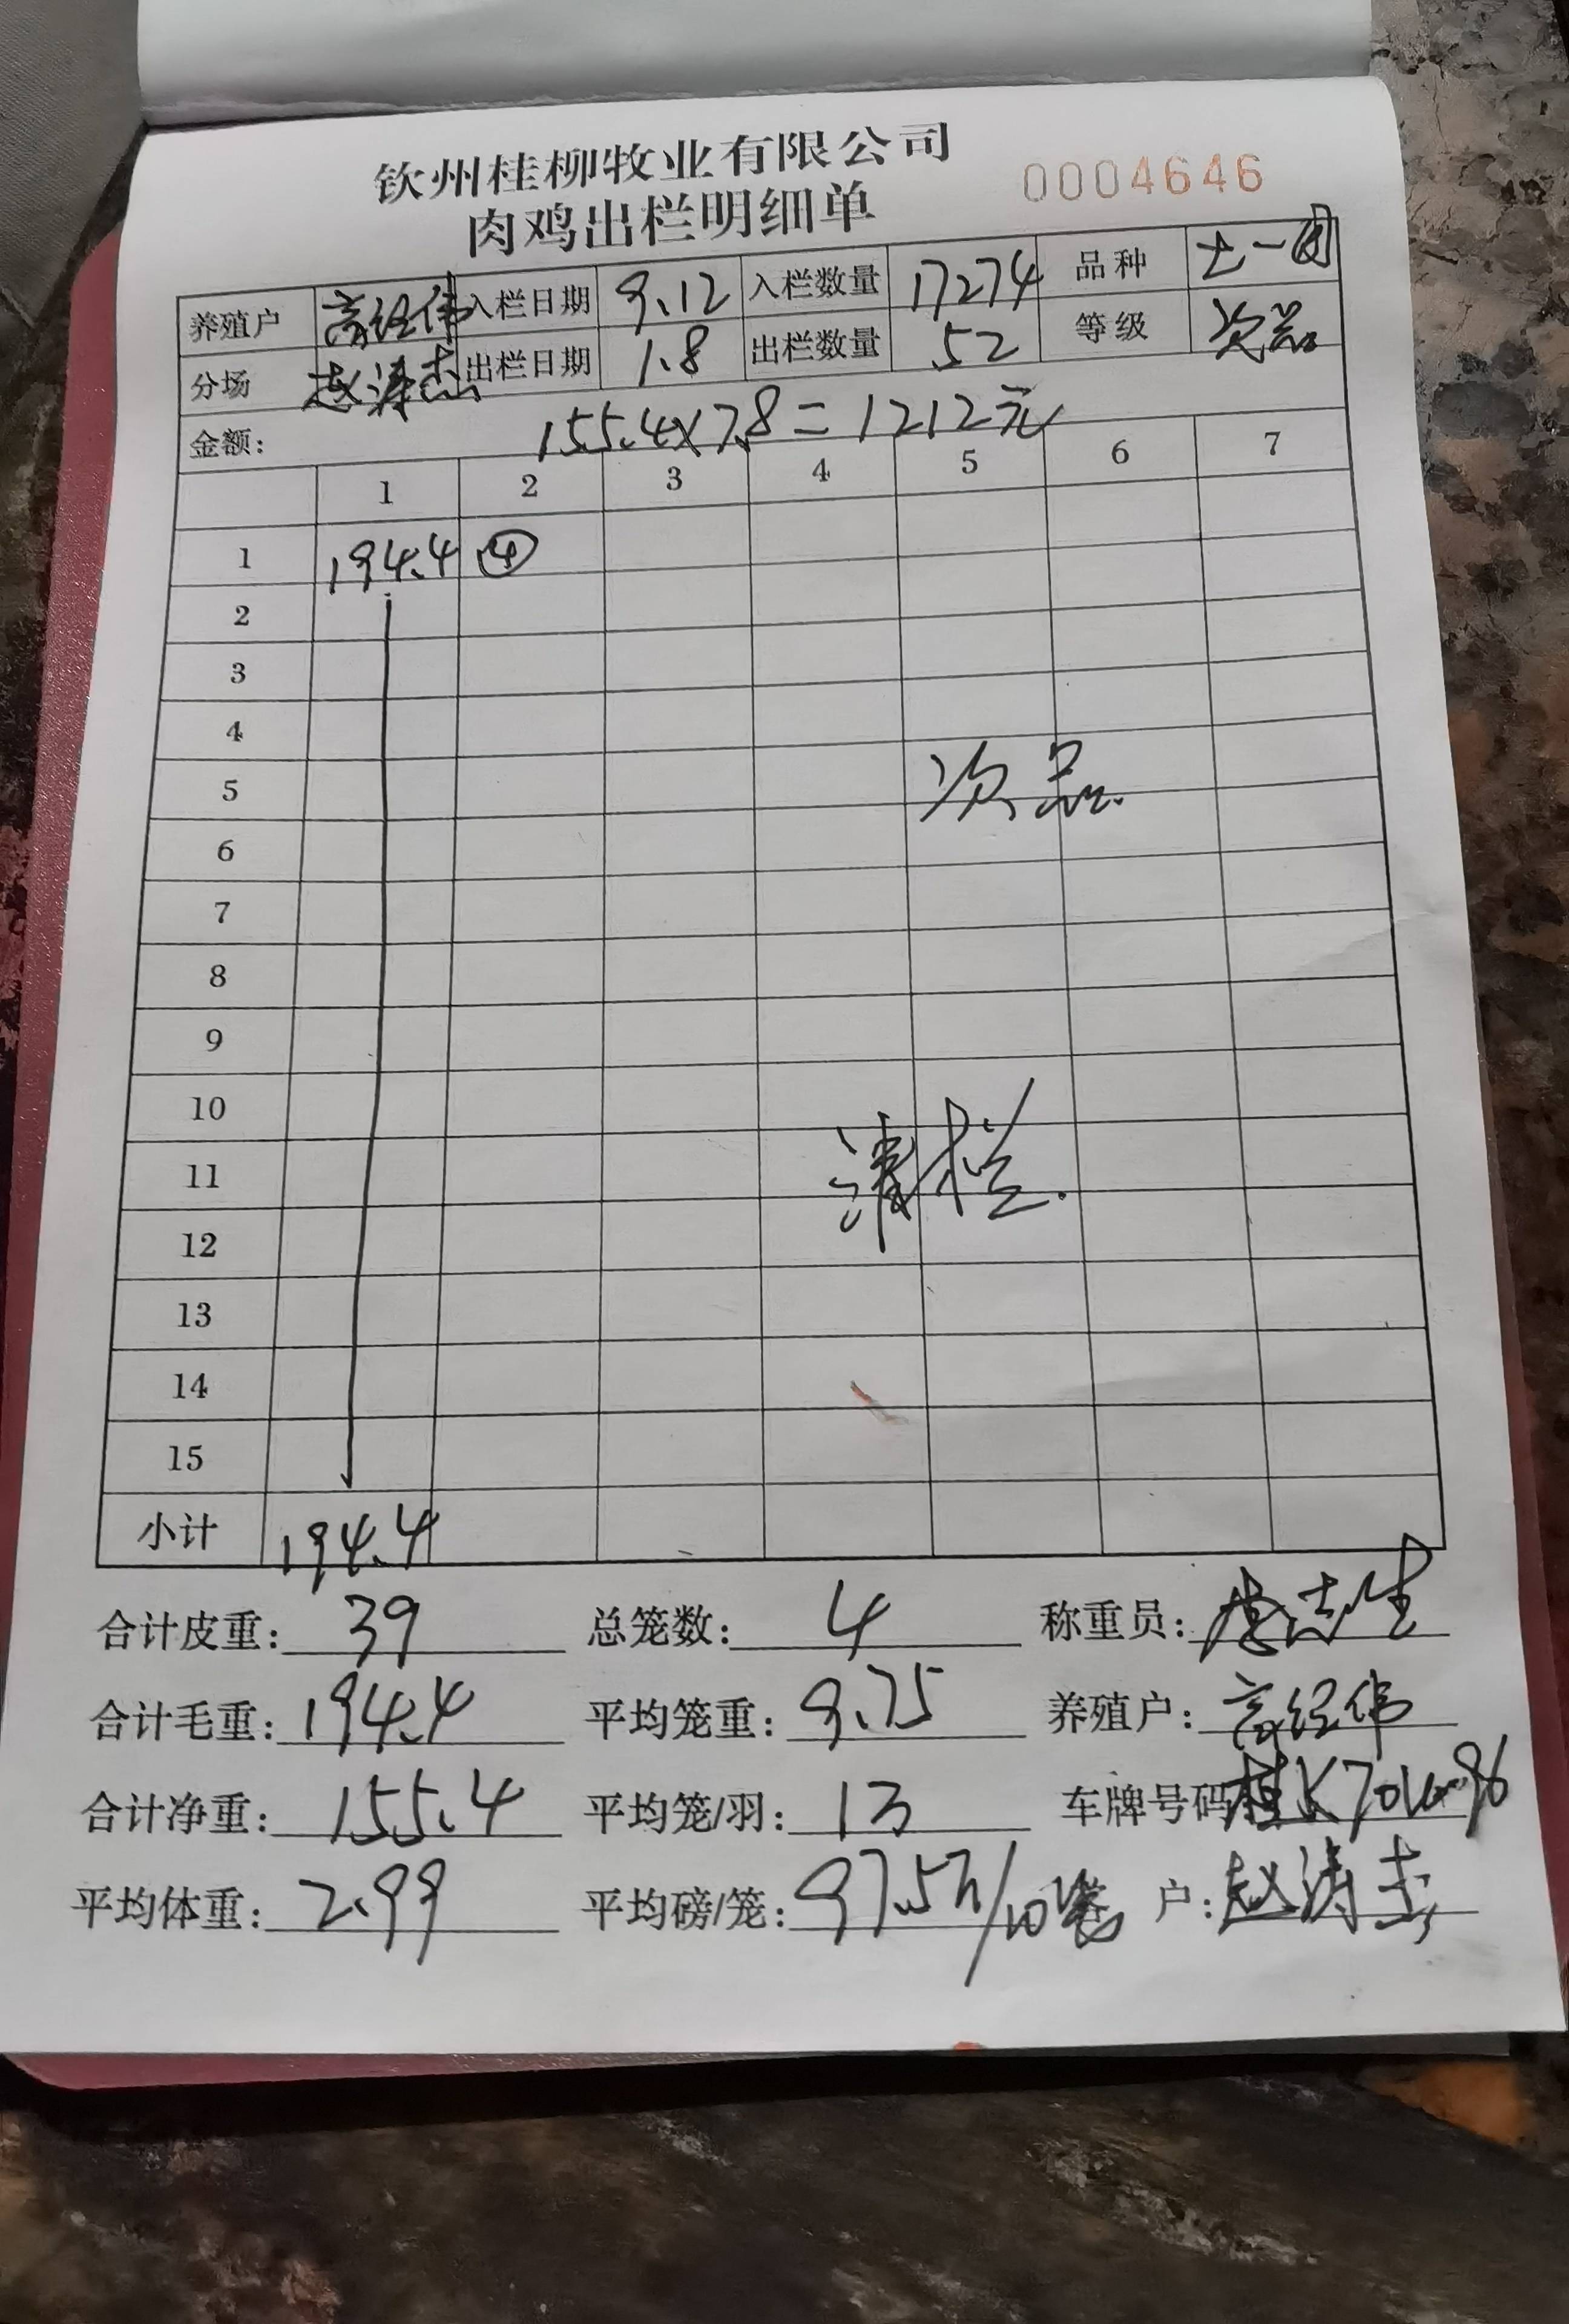 钦州桂柳牧业有限公司
肉鸡出栏明细单 0004646
养殖户 高经伟 入栏日期 9.12 入栏数量 17274 品种 土一
分场 赵涛杰 出栏日期 1.8 出栏数量 52 等级 次品
金额: 155.4×7.8=1212元
1 2 3 4 5 6 7
1 194.4 ④
2
3
4
5 次品.
6
7
8
9
10
11 清栏.
12
13
14
15
小计 194.4
合计皮重: 39 总笼数: 4 称重员: 志生
合计毛重: 194.4 平均笼重: 9.75 养殖户: 高经伟
合计净重: 155.4 平均笼/羽: 13 车牌号码 桂K
平均体重: 2.99 平均磅/笼: 97.5 户: 赵涛杰